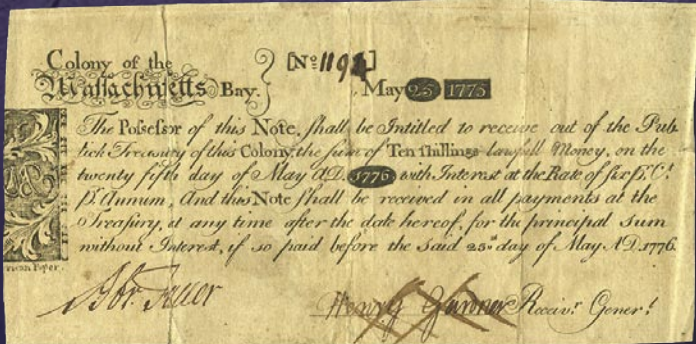 Colony of the
Massachusetts Bay.
[No 1192]
May 25 1775
The Possessor of this Note, shall be Intitled to receive out of the Pub-
lick Treasury of this Colony, the sum of Ten shillings lawfull Money, on the
twenty fifth day of May A.D. 1776 with Interest at the Rate of six pr. Ct.
pr. Annum, And this Note shall be received in all payments at the
Treasury, at any time after the date hereof, for the principal Sum
without Interest, if so paid before the said 25th day of May A.D. 1776.
rican Paper.
Henry Gardner Receivr. Generl.